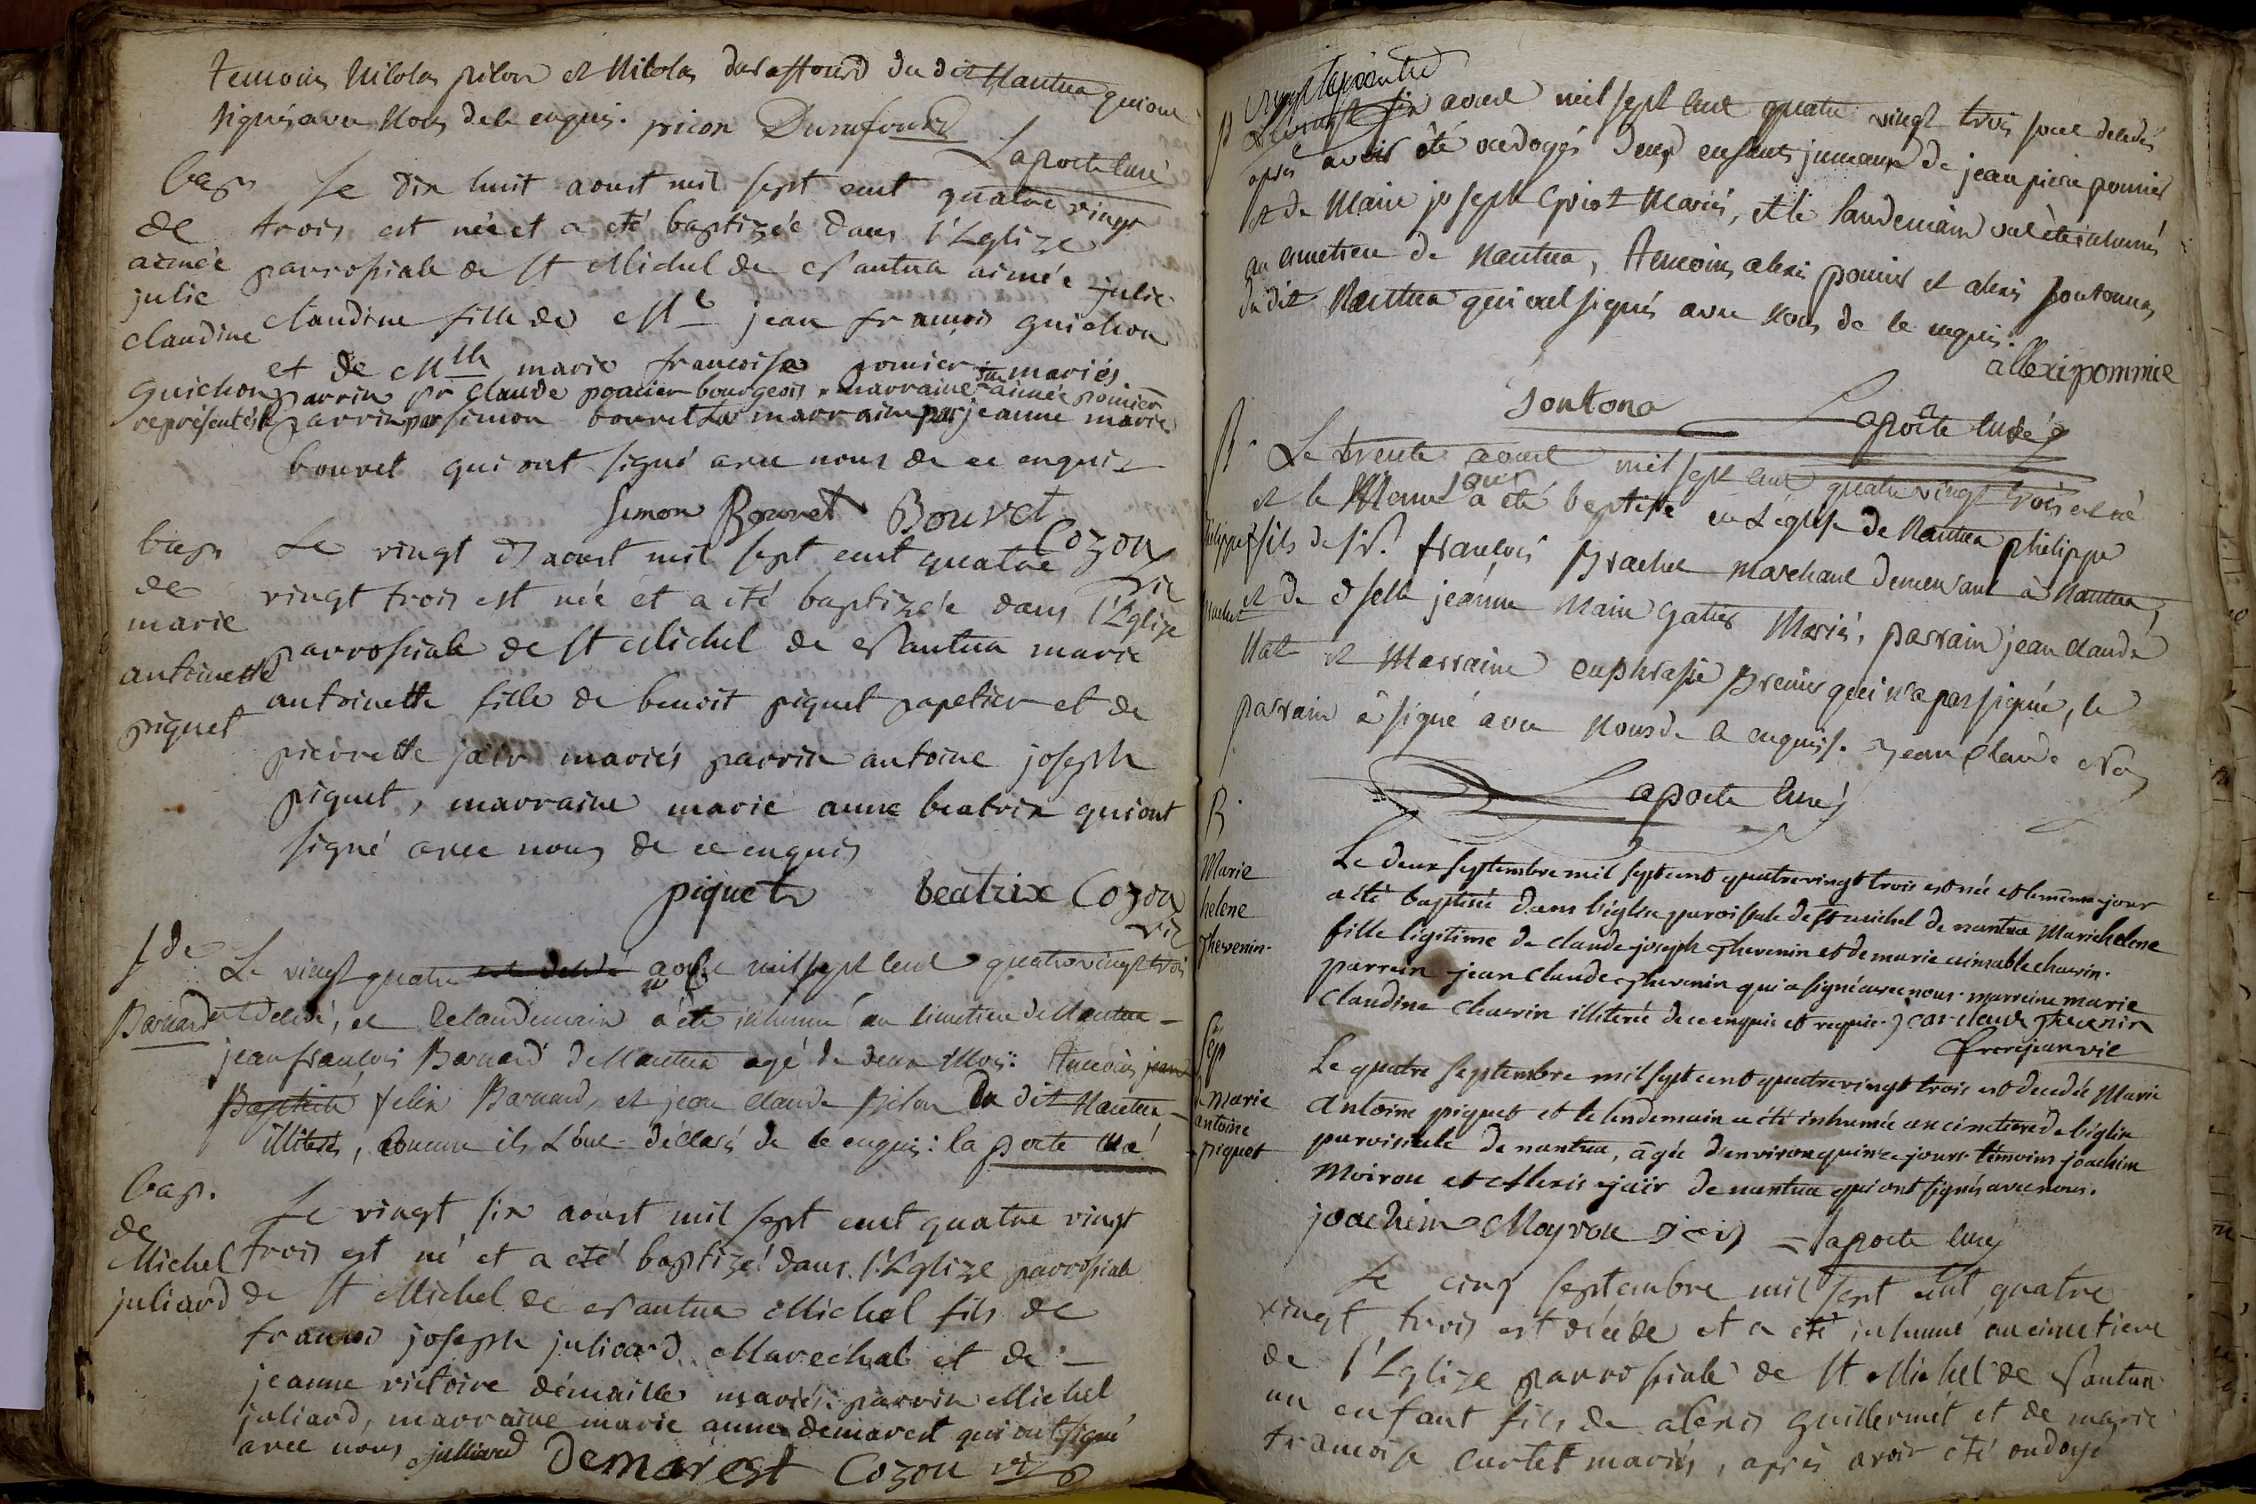 temoins Nicolas pilon et Nicolas duraffourd du dit Nantua qui ont
signés avec Nous de ce enquis. pilon Durafourd
Laporte curé
bap. Le dix huit aoust mil sept cent quatre vingt
de trois est née et a eté baptizée dans l'Eglize
aimée parrossiale de St Michel de Nantua aimée julie
julie
claudine claudine fille de Mr jean françois guichon
et de Mlle marie francoise pomier mariés
guichon parrin Sr claude pomier bourgeois marraine aimée pomier
représentés le parrin par simon bouvet la marraine par jeanne marie
bouvet qui ont signé avec nous de ce enquis
Simon Bouvet Bouvet
Cozon vic
bap. Le vingt aoust mil sept cent quatre
de vingt trois est née et a été baptizée dans l'Eglize
marie parrossiale de St Michel de Nantua marie
antoinette antoinette fille de benoit piquet papetier et de
piquet pierrette jaïr mariés parrin antoine joseph
piquet, marraine marie anne beatrix qui ont
signé avec nous de ce enquis
piquet beatrix Cozon
vic
S de Le vingt quatre est decedé aoust mil sept cent quatre vingt trois
Barnard est decedé, et le landemain a été inhumé au cimetiere de Nantua
jean françois Barnard de Nantua agé de deux Mois: temoins jean
Baptiste felix Barnard, et jean claude pilon du dit Nantua
illiterés, comme ils l'ont déclaré de ce enquis: la porte curé
bap. Le vingt six aoust mil sept cent quatre vingt
de
Michel trois est né et a eté baptizé dans l'Eglize parrossiale
juliard de St Michel de Nantua Michel fils de
françois joseph juliard Marechal et de
jeanne victoire démaille mariés: parrin Michel
juliard, marraine marie anne demarest qui ont signé
avec nous julliard Demarest Cozon vic
vingt aoust mil sept cent quatre vingt trois sont decedés
après avoir été ondoyés deux enfants jumeaux de jean pierre pomier
et de Marie joseph Guiot Mariés, et le landemain ont été inhumés
au cimetiere de Nantua, temoins alexi pomier et alexis
du dit Nantua qui ont signés avec Nous de ce enquis.
allexi pommie
Laporte curé
B. Le trente aoust mil sept cent quatre vingt trois est né
et le Meme jour a été baptisé en L'eglise de Nantua philippe
philippe fils de Sr. françois Brachet marchant demeurant à Nantua,
Brachet et de dselle jeanne Marie Mariés, parrain jean claude
et Marraine euphrasie qui n'a pas signé, le
parrain a signé avec Nous de ce enquis. jean claude
Laporte curé
B.
Marie Le deux septembre mil sept cent quatre vingt trois est née et le même jour
helene a été baptisée dans l'église paroissiale de st michel de nantua Marie helene
thevenin. fille légitime de claude joseph thevenin et de marie aimable chavin.
parrein jean claude thevenin qui a signé avec nous. marreine marie
claudine chavin illiterée de ce enquis et requis. jean claude thevenin
frerejean vic
Sep Le quatre septembre mil sept cent quatre vingt trois est decedée Marie
de marie Antoine piquet et le lendemain a été inhumée au cimetiere de l'église
antoine paroissiale de nantua, âgée d'environ quinze jours. témoins joachim
piquet Moirou et Alexis jaïr de nantua qui ont signés avec nous.
joachim Moyrou jair Laporte curé
Le cinq septembre mil sept cent quatre
vingt trois est décédé et a été inhumé au cimetiere
de l'Eglize parrossiale de St Michel de Nantua
un enfant fils de alexis guillermet et de marie
francoise curtet mariés, après avoir été ondoyé